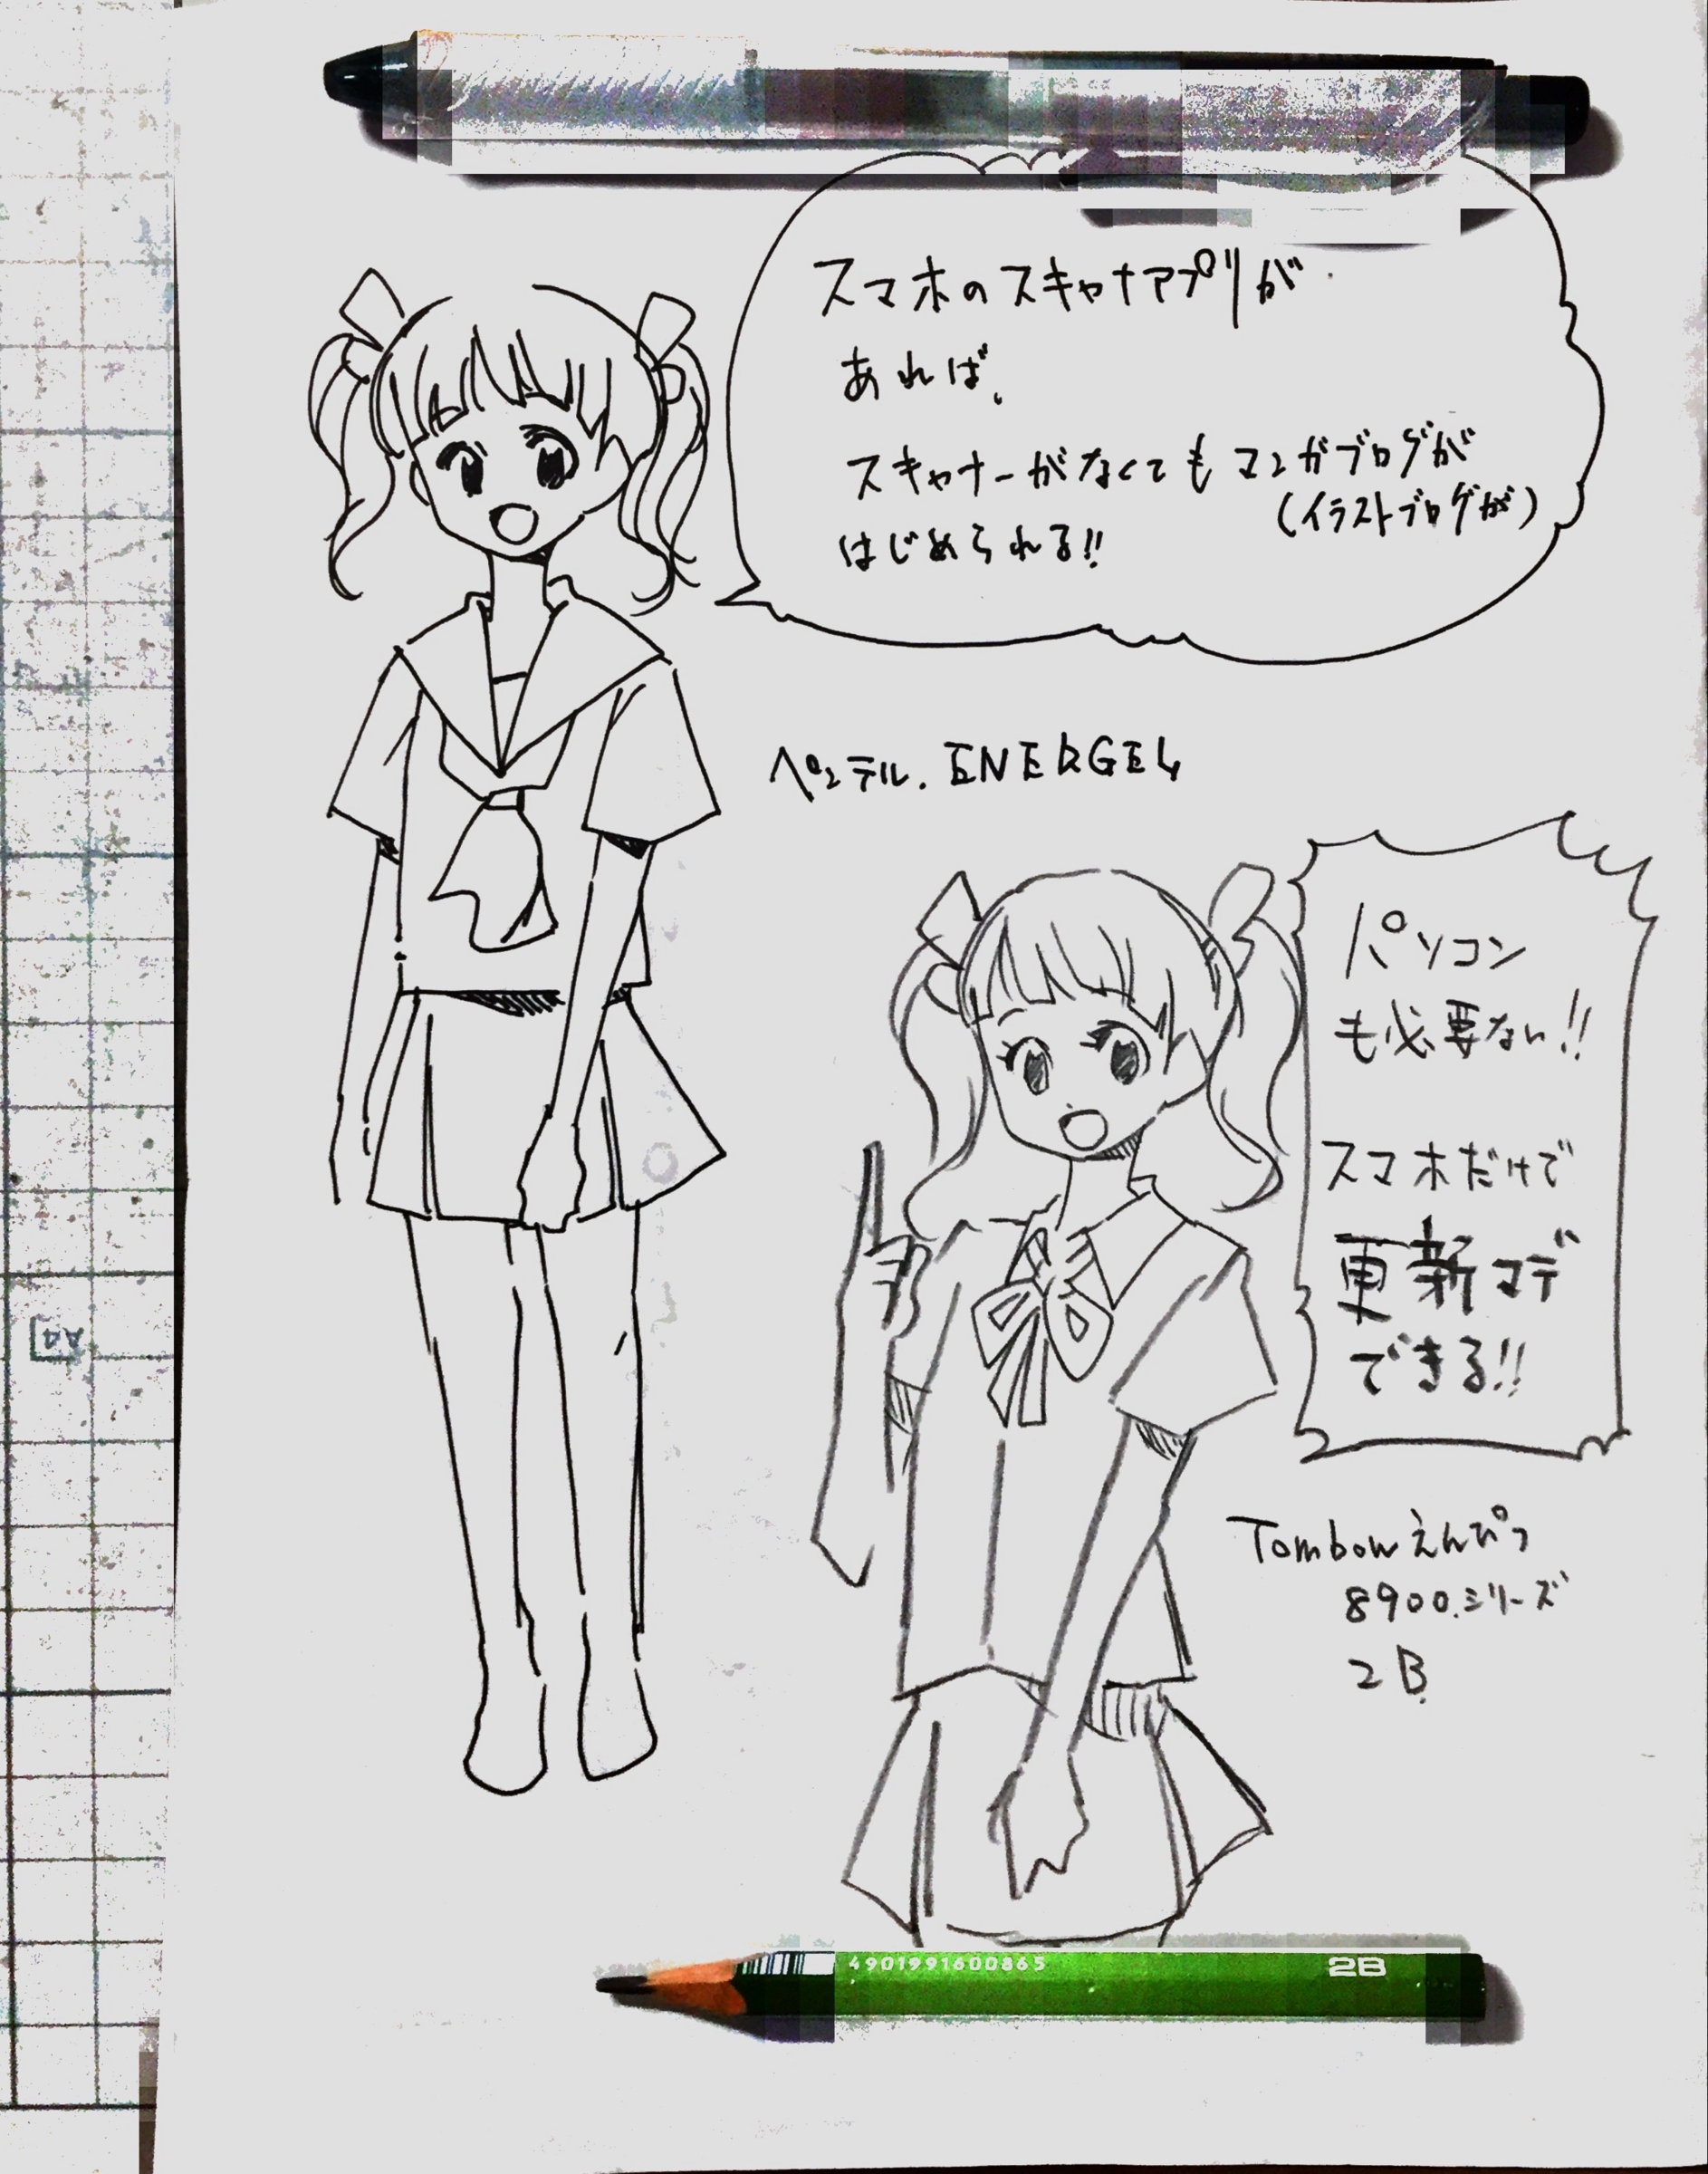 スマホのスキャナアプリが
あれば、
スキャナーがなくてもマンガブログが
(イラストブログが)
はじめられる!!
ペンテル. ENERGEL
パソコン
も必要ない!!
スマホだけで
更新マデ
できる!!
Tombowえんぴつ
8900.シリーズ
2B
4901991600865 2B
A4